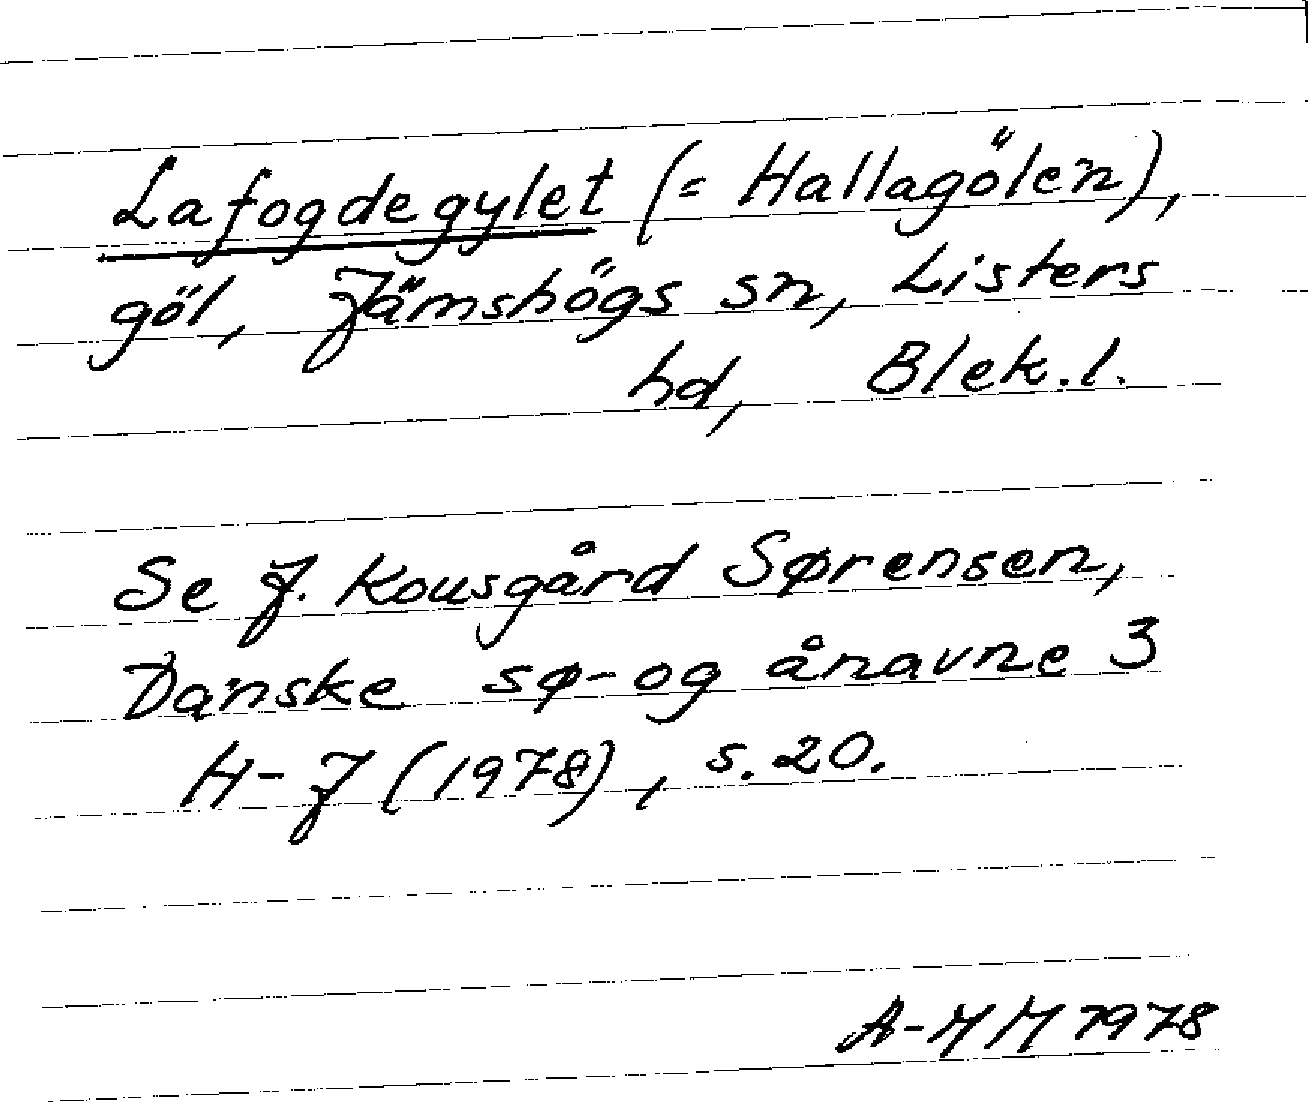 Lafogdegylet (= Hallagölen),
göl, Jämshögs sn, Listers
hd, Blek. l.
Se J. Kousgård Sørensen,
Danske sø- og ånavne 3
H-J (1978), s. 20.
A-MM 1978